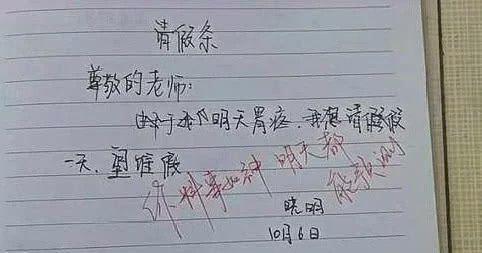 请假条
尊敬的老师:
由于我明天胃疼.我想请假
一天.望准假
你料事如神 明天都能预测
晓明
10月6日